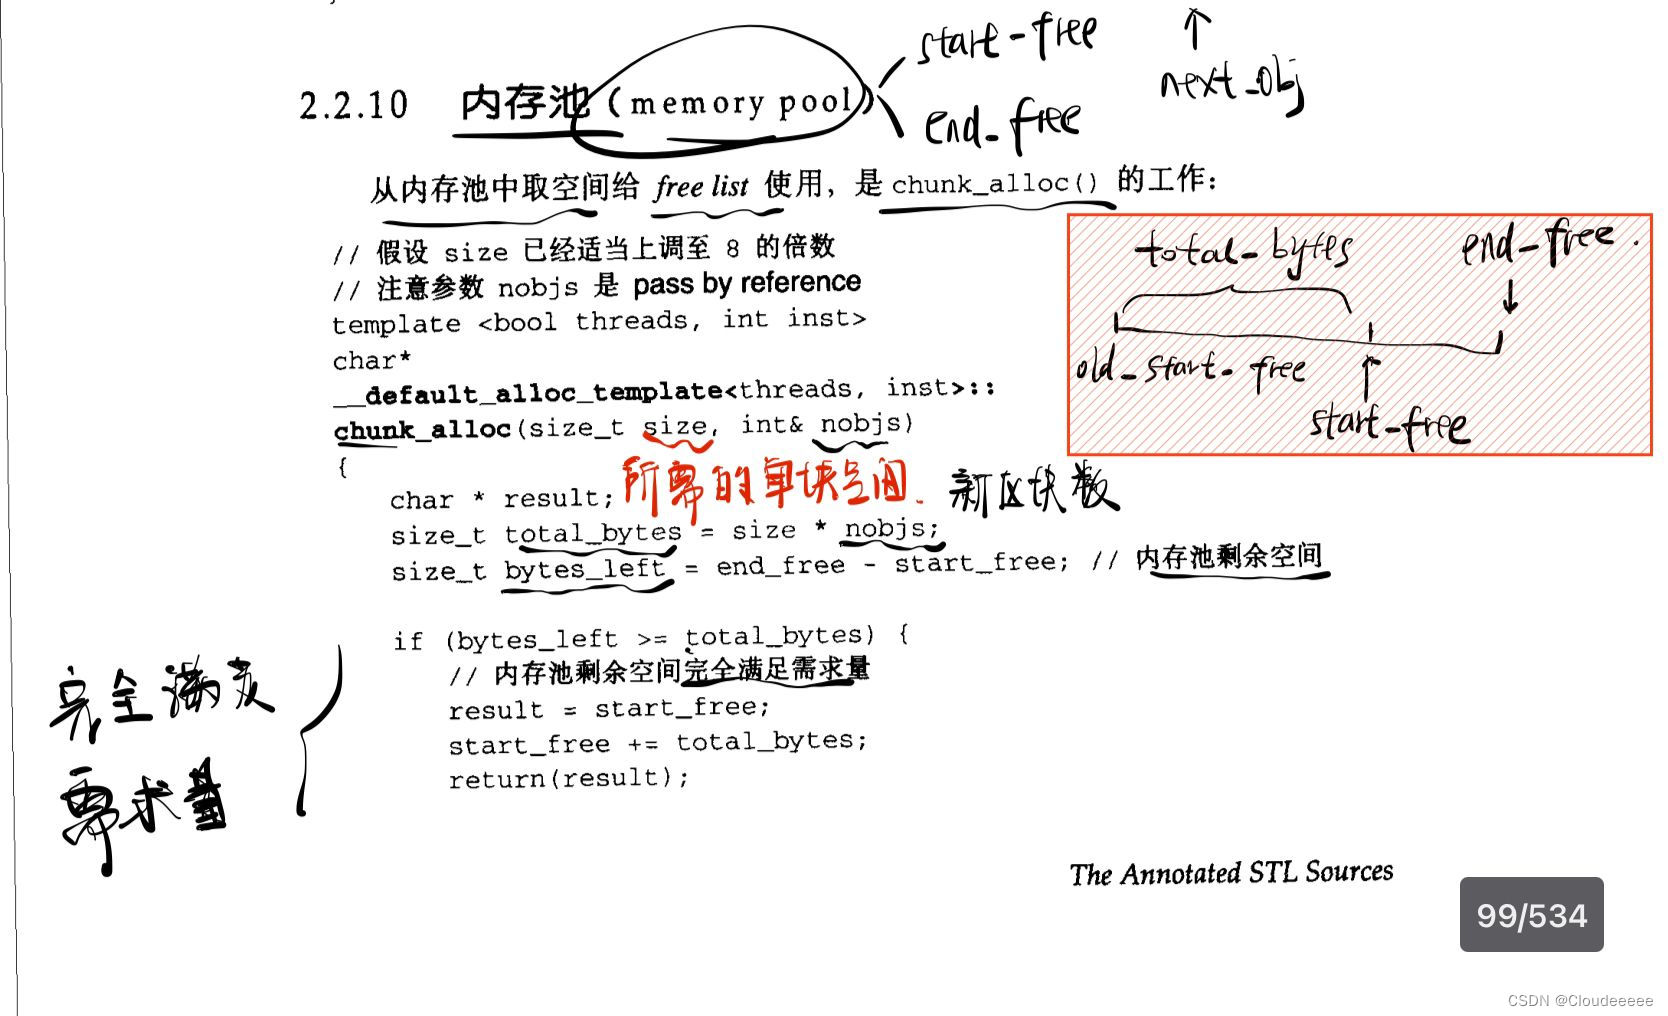 start-free
↑
next_obj
2.2.10 内存池（memory pool）
end_free
从内存池中取空间给 free list 使用，是 chunk_alloc() 的工作：
// 假设 size 已经适当上调至 8 的倍数
// 注意参数 nobjs 是 pass by reference
template <bool threads, int inst>
char*
__default_alloc_template<threads, inst>::
chunk_alloc(size_t size, int& nobjs)
{
total_bytes
end_free.
old_start_free
start_free
所需的单块空间.
新区块数
char * result;
size_t total_bytes = size * nobjs;
size_t bytes_left = end_free - start_free; // 内存池剩余空间
if (bytes_left >= total_bytes) {
// 内存池剩余空间完全满足需求量
result = start_free;
start_free += total_bytes;
return(result);
完全满足
需求量
The Annotated STL Sources
99/534
CSDN @Cloudeeeee